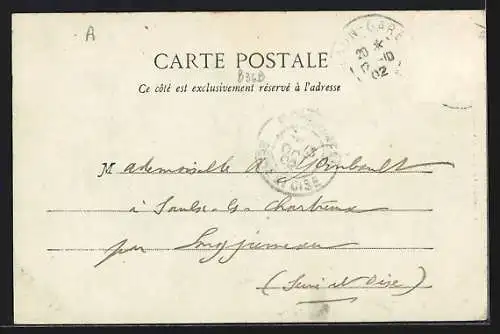 A
CARTE POSTALE
B36B
Ce côté est exclusivement réservé à l'adresse
GARE
20 *
12 -10
02
OISE
Mademoiselle A. Gombault
à Saulx-les-Chartreux
par Longjumeau
(Seine et Oise)